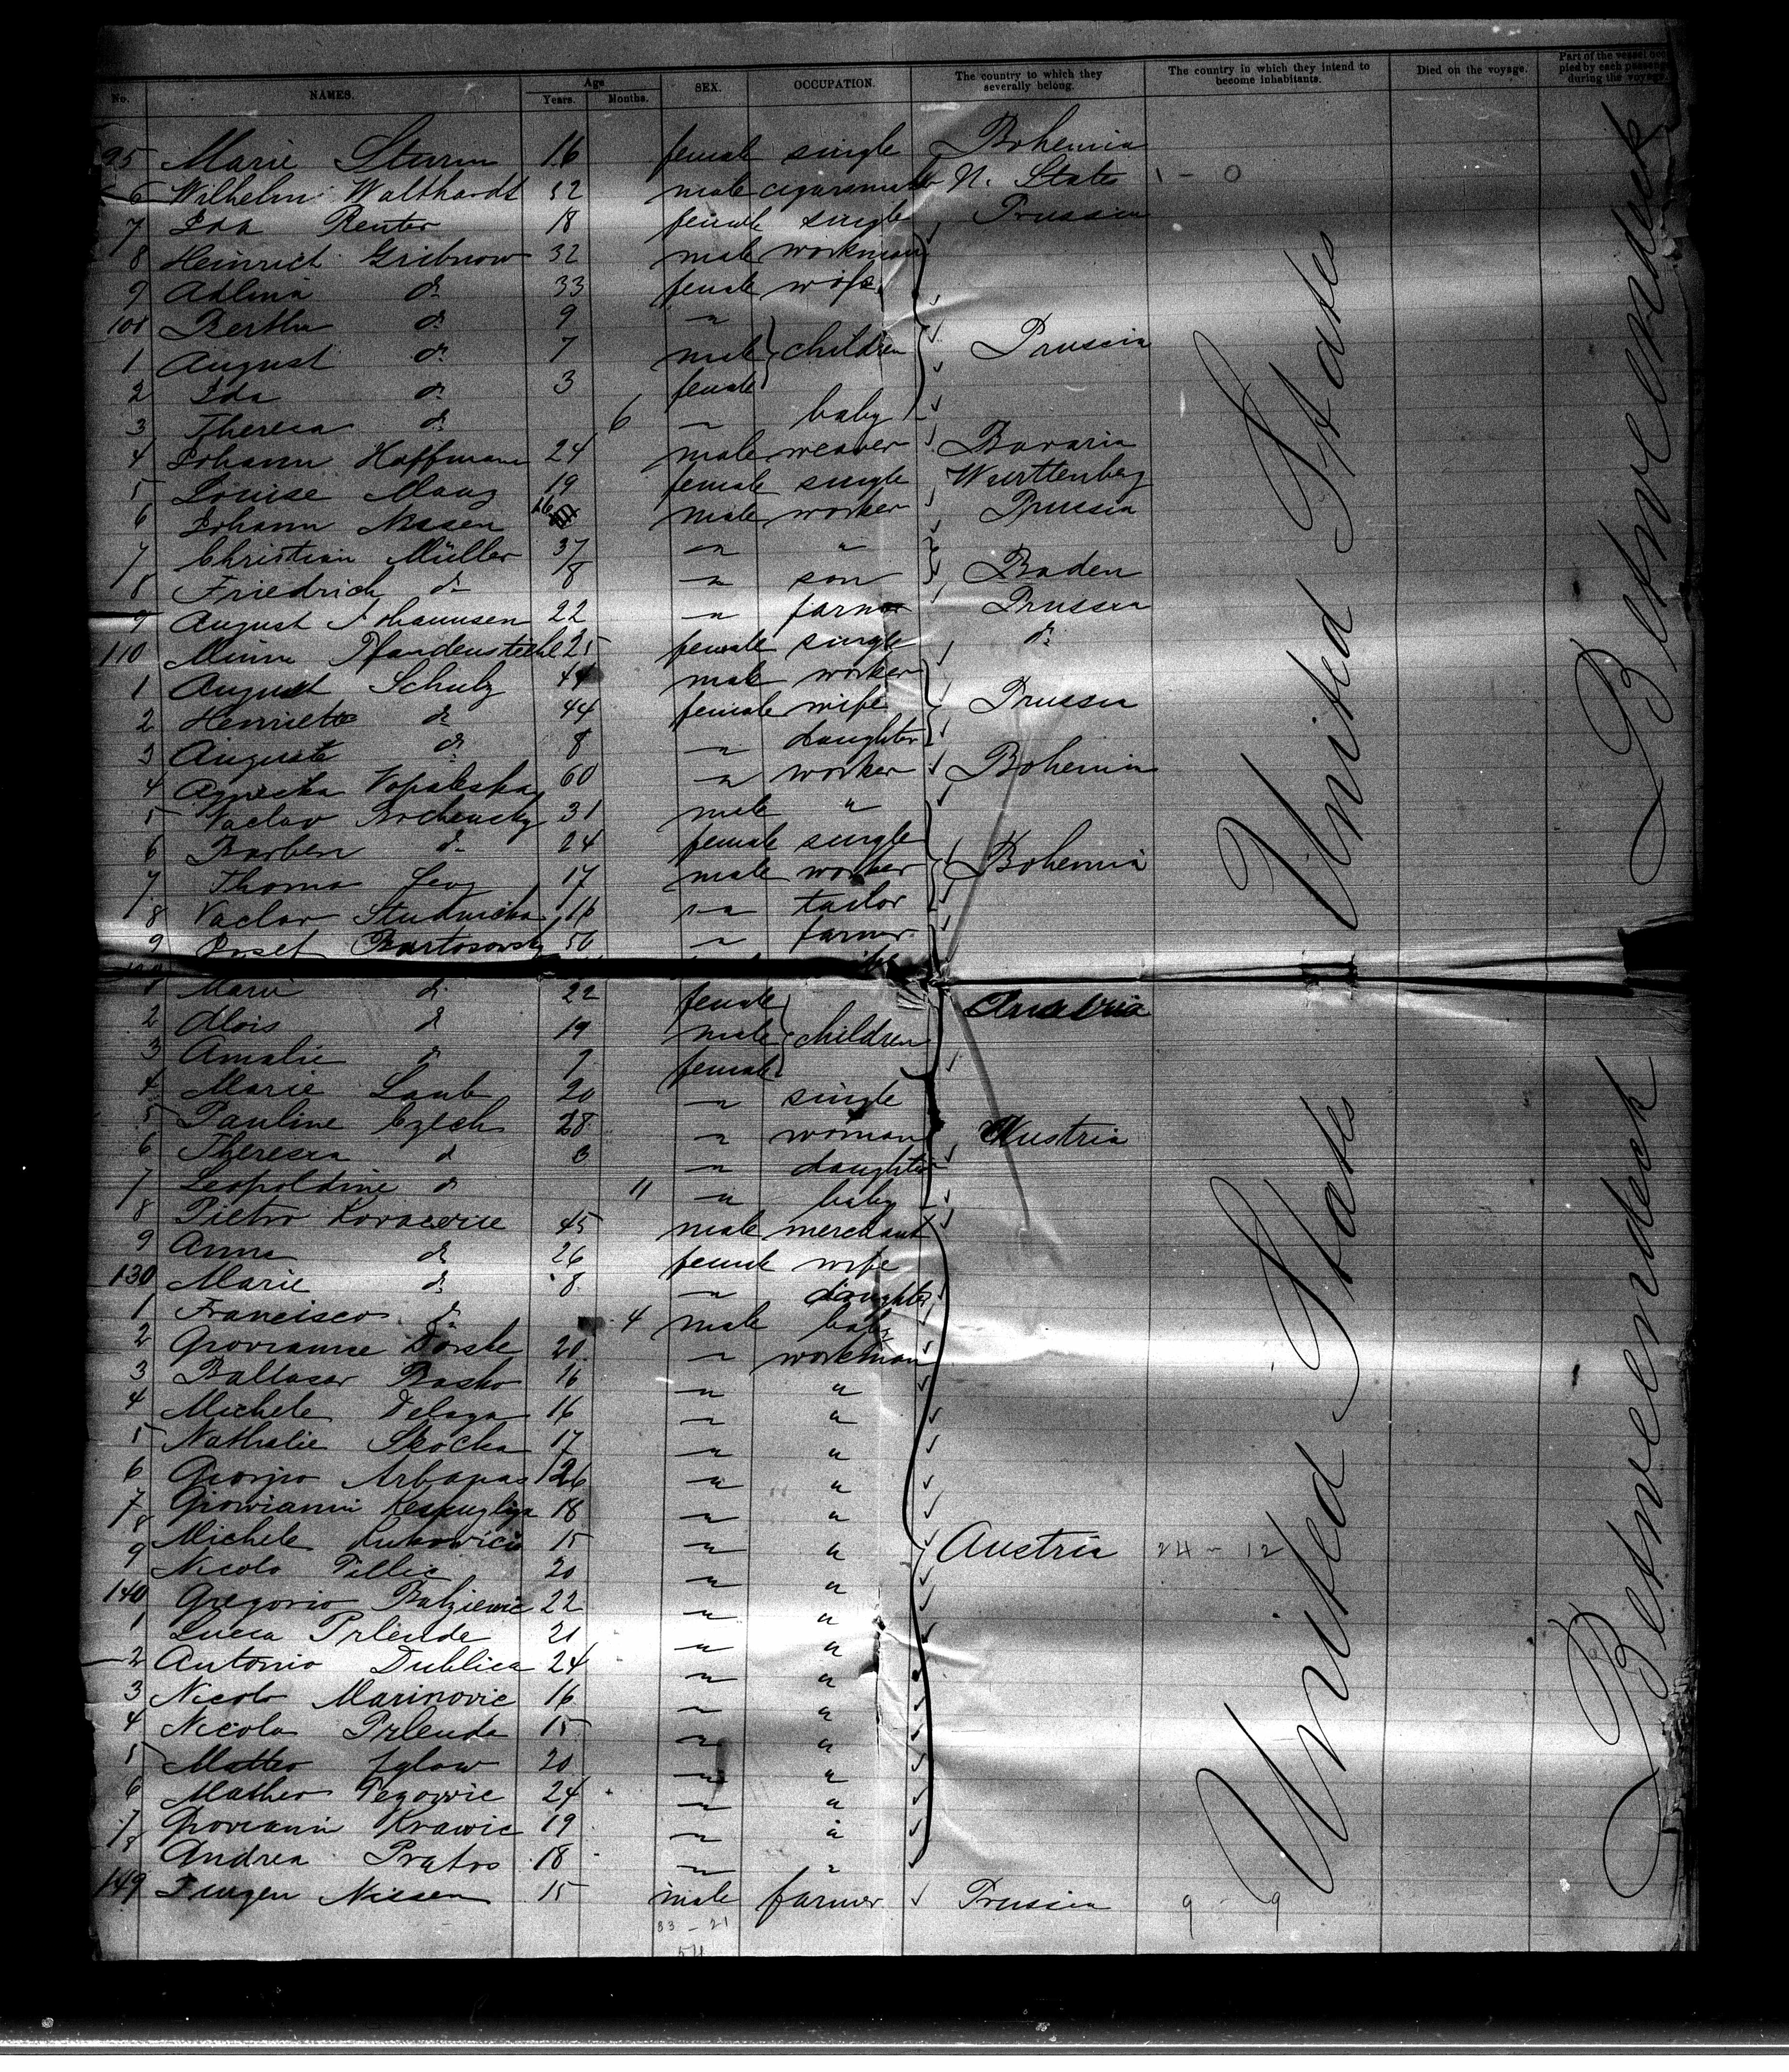 No. NAMES. Age Years. Months. SEX. OCCUPATION. The country to which they severally belong. The country in which they intend to become inhabitants. Died on the voyage. Part of the vessel occupied by each passenger during the voyage.
95 Marie Sturm 16 female single Bohemia
6 Wilhelm Walthardt 32 male N. States 1 - 0
7 Ida Renter 18 female single Prussia
8 Heinrich Gribnow 32 male workman
9 Adlina do 33 female wife
Bertha do 9 "
1 August do 7 male children Prussia
2 Ida do 3 female
3 Theresa do 6 " baby
4 Johann Hoffmann 24 male weaver Bavaria
5 Louise Maag 19 female single Württenberg
6 Johann Nissen 16 male worker Prussia
7 Christian Müller 37 " "
8 Friedrich do 8 " son Baden
9 August Johannsen 22 " farmer Prussia
110 Minna 25 female single do
1 August Schulz 44 male worker
2 Henriette do 44 female wife Prussia
3 Auguste do 8 " daughter
4 60 " worker Bohemia
5 Vaclav 31 male "
6 do 24 female single
7 Thoma 17 male worker Bohemia
8 Vaclav Studnicka 16 " tailor
9 Josef Bartosowsky 50 " farmer
1 Marie do 22 female Austria
2 Alois do 19 male children
3 Amalie do 9 female
4 Marie Laub 20 " single
5 Pauline Czech 28 " woman Austria
6 Theresia do 3 " daughter
7 Leopoldine do 11 " baby
8 Pietro 45 male merchant
9 Anna do 26 female wife
130 Marie do 8 " daughter
1 Francisco do 4 male baby
2 20 " workman
3 Baltasar Basko 16 " "
4 Michele Delaga 16 " "
5 Nathalie Skocka 17 " "
6 Giorgio Arbanas 26 " "
7 18 " "
8 Michele 15 " " Austria 24 - 12
9 Nicolo Pillic 20 " "
140 Gregorio 22 " "
1 Lucca Prlende 21 " "
2 Antonio Dublica 24 " "
3 Nicolo Marinovic 16 " "
4 Nicola Prlenda 15 " "
5 Matteo 20 " "
6 Matheo 24 " "
7 Giovanni Krawic 19 " "
8 Andrea Pratos 18 " "
149 Jürgen Nissen 15 male farmer Prussia 9 - 9
33 - 21
54
United States
United States
Betweendeck
Betweendeck